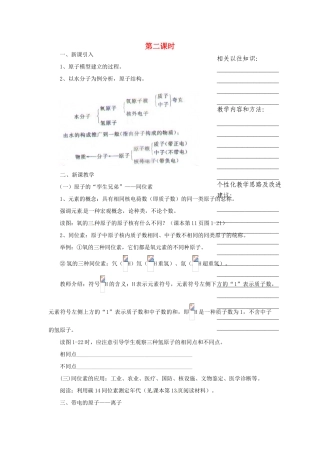 第二课时
一、新课引入
1、原子模型建立的过程。
2、以水分子为例分析：原子结构。
水分子
氧原子
氢原子
氧原子核
核外电子
质子
中子
夸克
由水的构成推广到一般(指由分子构成的物质)：
物质 分子 原子
质子(带正电)
中子(不带电)
核外电子(带负电)
二、新课教学
(一)原子的“孪生兄弟”——同位素
1、元素的概念：具有相同核电荷数(即质子数)的同一类原子的总称。
强调元素是一种宏观概念，论种类，不论个数。
读图：氢的三种原子的核有什么不同？(课本第11页图1-21)
2、同位素：原子中原子核内质子数相同、中子数不相同的同类原子的统称。
举例：①氧的三种同位素，它们都是氧元素的不同种原子。
② 氢的三种同位素：氕(H 氢)、氘(H 重氢)、氚(H 超重氢)。
教师介绍：符号H的含义：H 元素符号，元素符号左侧下方的“1”表示质子数，
元素符号左侧上方的“1”表示质子数和中子数的和，即H是一种质子数为1，不含中子
的氢原子。
读图1-22时，应注意引导学生观察三种氢原子的相同点和不同点。
相同点
不同点
(三)同位素的应用：工农业、医疗、国防、核设施、文物鉴定、医学诊断等。
阅读：利用碳14同位素测定年代(见课本第15页阅读材料)。
三、带电的原子——离子
相关以往知识:
教学内容和方法:
个性化教学思路及改进
建议: